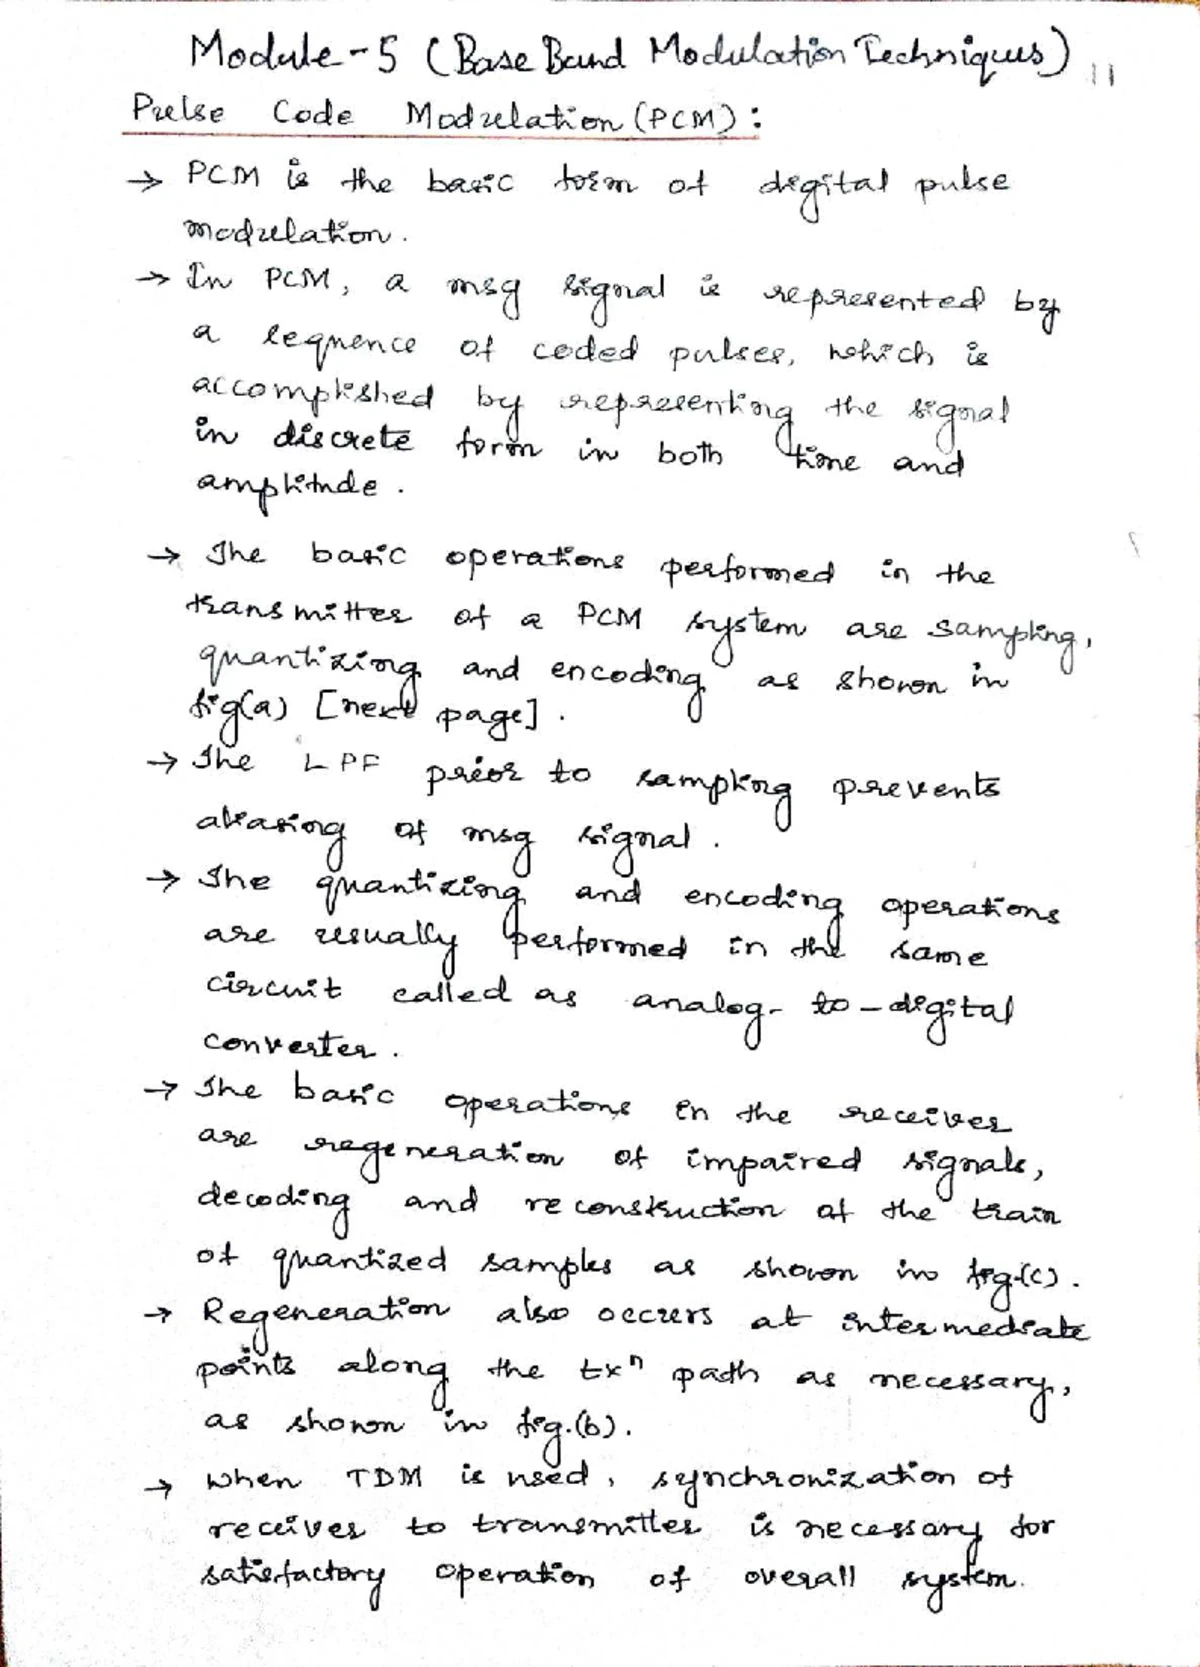 Module-5 (Base Band Modulation Techniques)
Pulse Code Modulation (PCM) :
→ PCM is the basic form of digital pulse
modulation.
→ In PCM, a msg signal is represented by
a sequence of coded pulses, which is
accomplished by representing the signal
in discrete form in both time and
amplitude.
→ The basic operations performed in the
transmitter of a PCM system are sampling,
quantizing and encoding as shown in
fig(a) [next page].
→ The LPF prior to sampling prevents
aliasing of msg signal.
→ The quantizing and encoding operations
are usually performed in the same
circuit called as analog-to-digital
converter.
→ The basic operations in the receiver
are regeneration of impaired signals,
decoding and reconstruction of the train
of quantized samples as shown in fig.(c).
→ Regeneration also occurs at intermediate
points along the txⁿ path as necessary,
as shown in fig.(b).
→ When TDM is used, synchronization of
receiver to transmitter is necessary for
satisfactory operation of overall system.